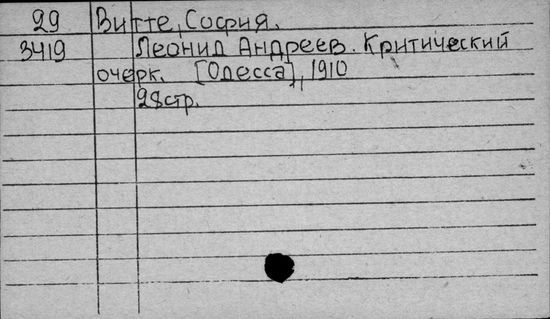 29 Витте, София.
3419 Леонид Андреев. Критический
очерк. [Одесса], 1910
28стр.